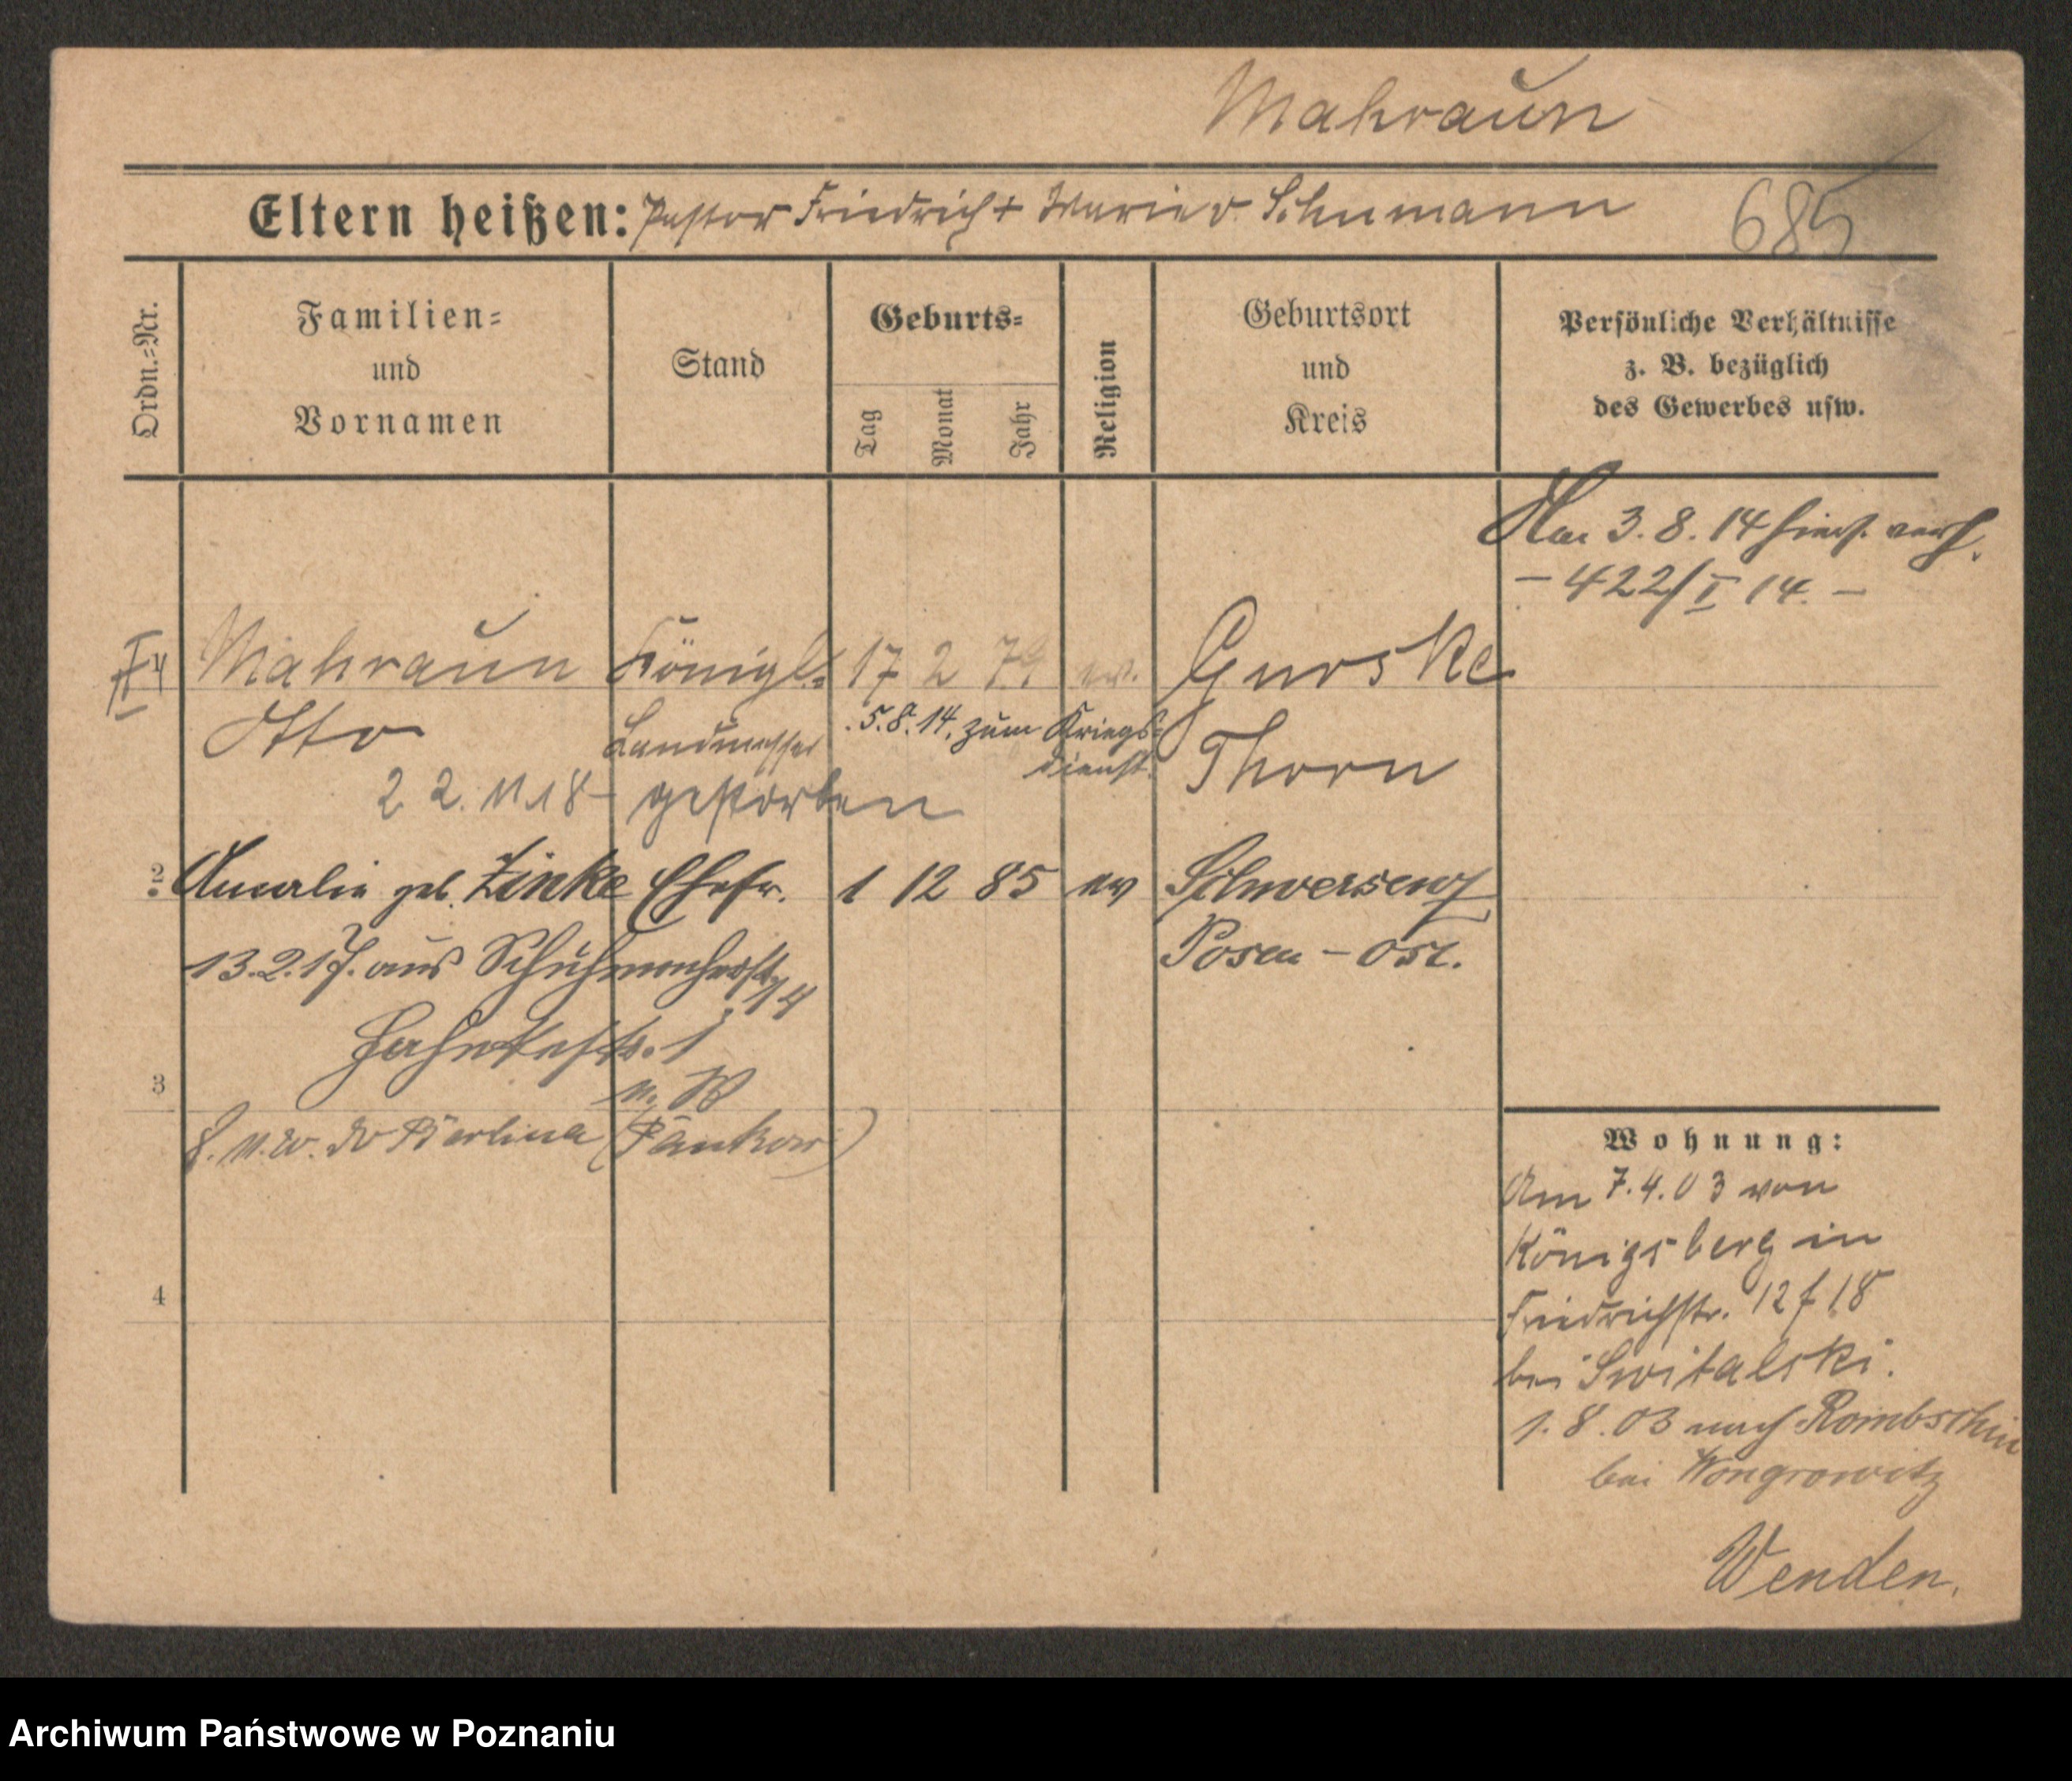 Mahraun
Eltern heißen: Pastor Friedrich + Marie v. Schumann
685
Ordn.-Nr.
Familien-
und
Vornamen
Stand
Geburts-
Tag
Monat
Jahr
Religion
Geburtsort
und
Kreis
Persönliche Verhältnisse
z. B. bezüglich
des Gewerbes usw.
Am 3.8.14 hier verh.
- 422/I 14. -
Mahraun Königl. 17 2 79 ev. Gurske
Otto Landmesser 5.8.14. zum Kriegs-
dienst. Thorn
22.11.18 gestorben
2 Amalie geb. Zinke Ehefr. 1 12 85 ev Schwersenz
Posen-Ost.
13.2.17. aus Schuhmacherstr. 14
1
n. W
3
n. W. Berlin (Pankow)
4
Wohnung:
Am 7.4.03 von
Königsberg in
Friedrichstr. 12 18
bei Switalski.
1.8.03 nach Rombschin
bei Wongrowitz
Wenden.
Archiwum Państwowe w Poznaniu